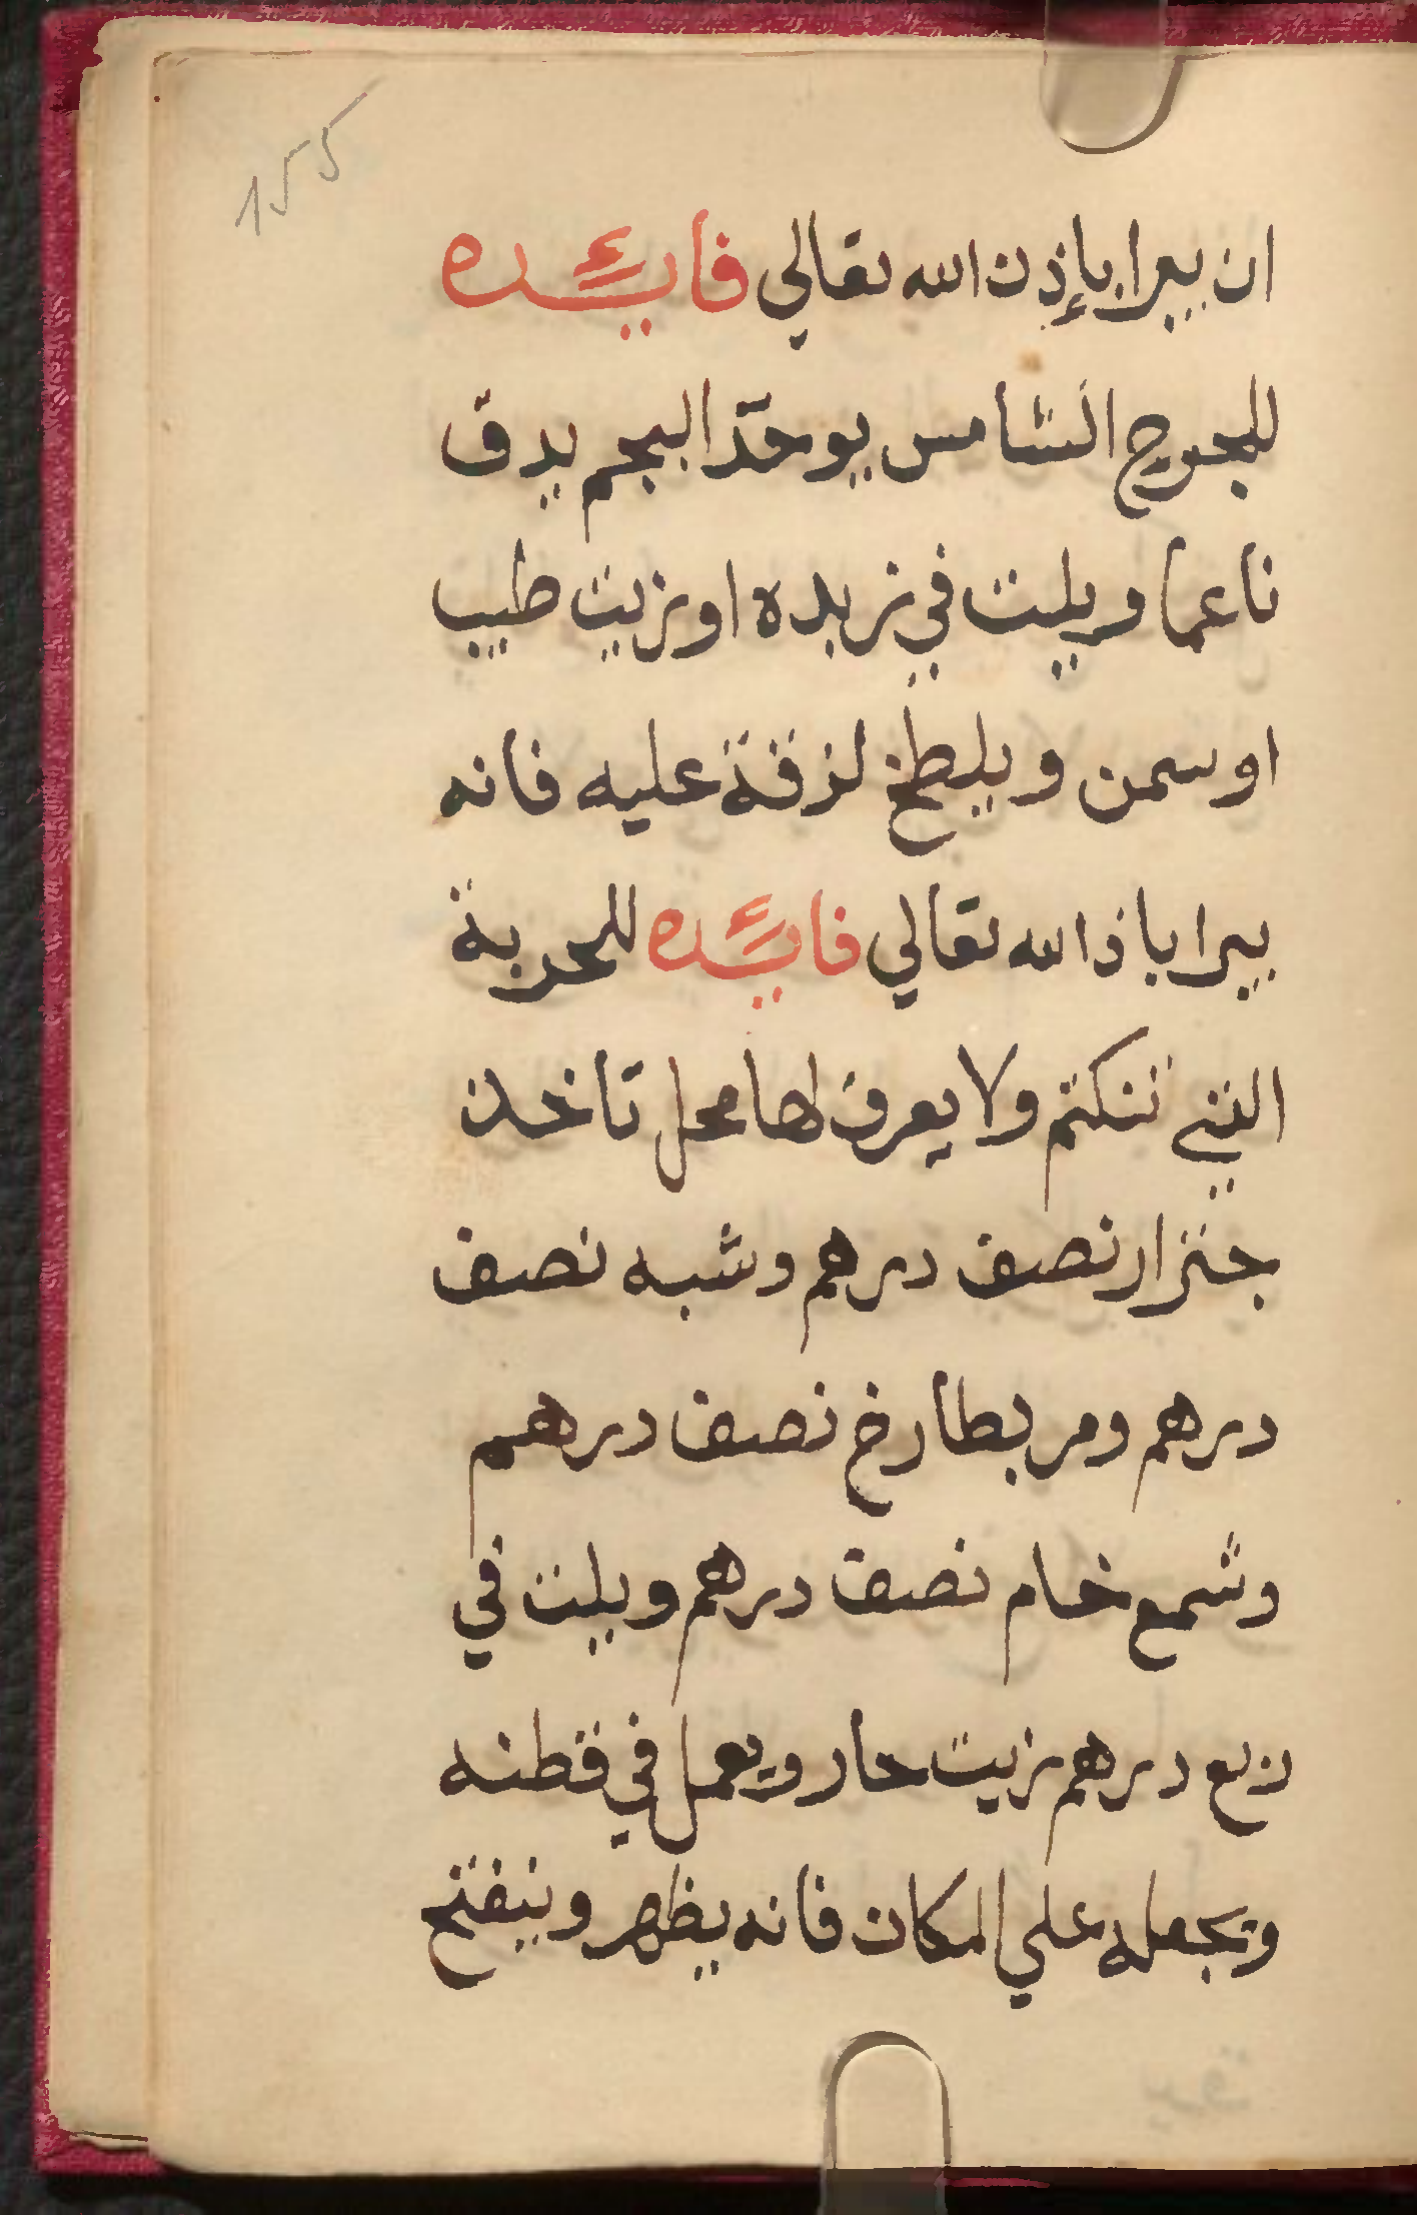 155
ان يبرا بإذن الله تعالي فائده
للجرح الشامس يوخد البجم يدق
ناعما ويلت في زبده او زيت طيب
او سمن ويلطخ لزقة عليه فانه
يبرا باذالله تعالي فائده للحربة
التي تنكتم ولا يعرف لها محل تاخذ
جنزار نصف درهم وشبه نصف
درهم ومر بطارخ نصف درهم
وشمع خام نصف درهم ويلت في
ربع درهم زيت حار ويعمل في قطنه
وتجعله علي المكان فانه يظهر وينفتح